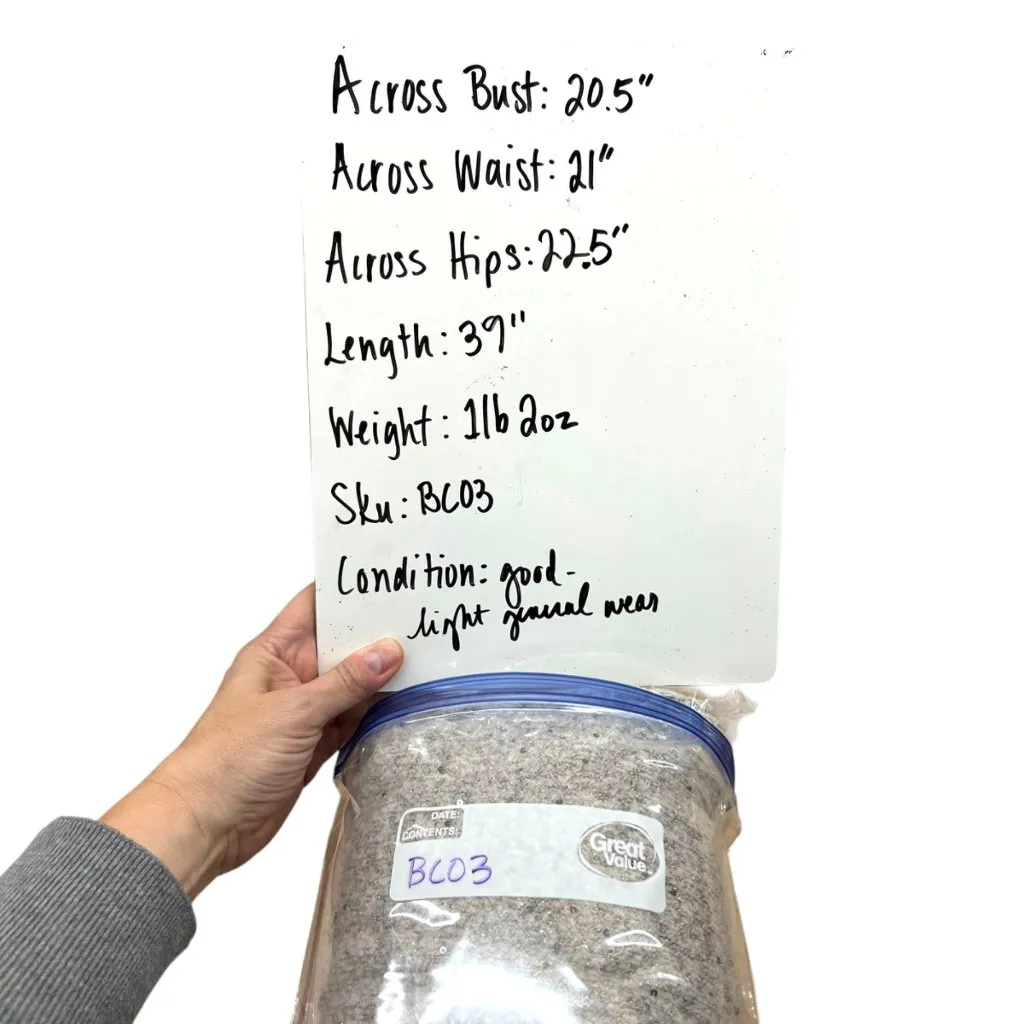 Across Bust: 20.5"
Across Waist: 21"
Across Hips: 22.5"
Length: 39"
Weight: 1lb 2oz
Sku: BC03
Condition: good-
light general wear
DATE:
CONTENTS:
BC03
Great
Value